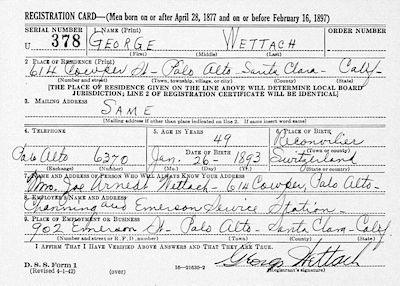 REGISTRATION CARD—(Men born on or after April 28, 1877 and on or before February 16, 1897)
SERIAL NUMBER 1. NAME (Print) ORDER NUMBER
U 378 GEORGE WETTACH
(First) (Middle) (Last)
2. PLACE OF RESIDENCE (Print)
614 Cowper St - Palo Alto - Santa Clara - Calif.
(Number and street) (Town, township, village, or city) (County) (State)
[THE PLACE OF RESIDENCE GIVEN ON THE LINE ABOVE WILL DETERMINE LOCAL BOARD
JURISDICTION; LINE 2 OF REGISTRATION CERTIFICATE WILL BE IDENTICAL]
3. MAILING ADDRESS
SAME
[Mailing address if other than place indicated on line 2. If same insert word same]
4. TELEPHONE 5. AGE IN YEARS 6. PLACE OF BIRTH
49 Reconvilier
DATE OF BIRTH (Town or county)
Palo Alto 6370 Jan. 26 - 1893 Switzerland
(Exchange) (Number) (Mo.) (Day) (Yr.) (State or country)
7. NAME AND ADDRESS OF PERSON WHO WILL ALWAYS KNOW YOUR ADDRESS
Mrs. Joe Arnest Wettach - 614 Cowper, Palo Alto -
8. EMPLOYER'S NAME AND ADDRESS
Channing and Emerson Service Station -
9. PLACE OF EMPLOYMENT OR BUSINESS
902 Emerson St - Palo Alto - Santa Clara - Calif
(Number and street or R. F. D. number) (Town) (County) (State)
I AFFIRM THAT I HAVE VERIFIED ABOVE ANSWERS AND THAT THEY ARE TRUE.
D. S. S. Form 1 George Wettach
(Revised 4-1-42) (over) 16—21630-2 (Registrant's signature)